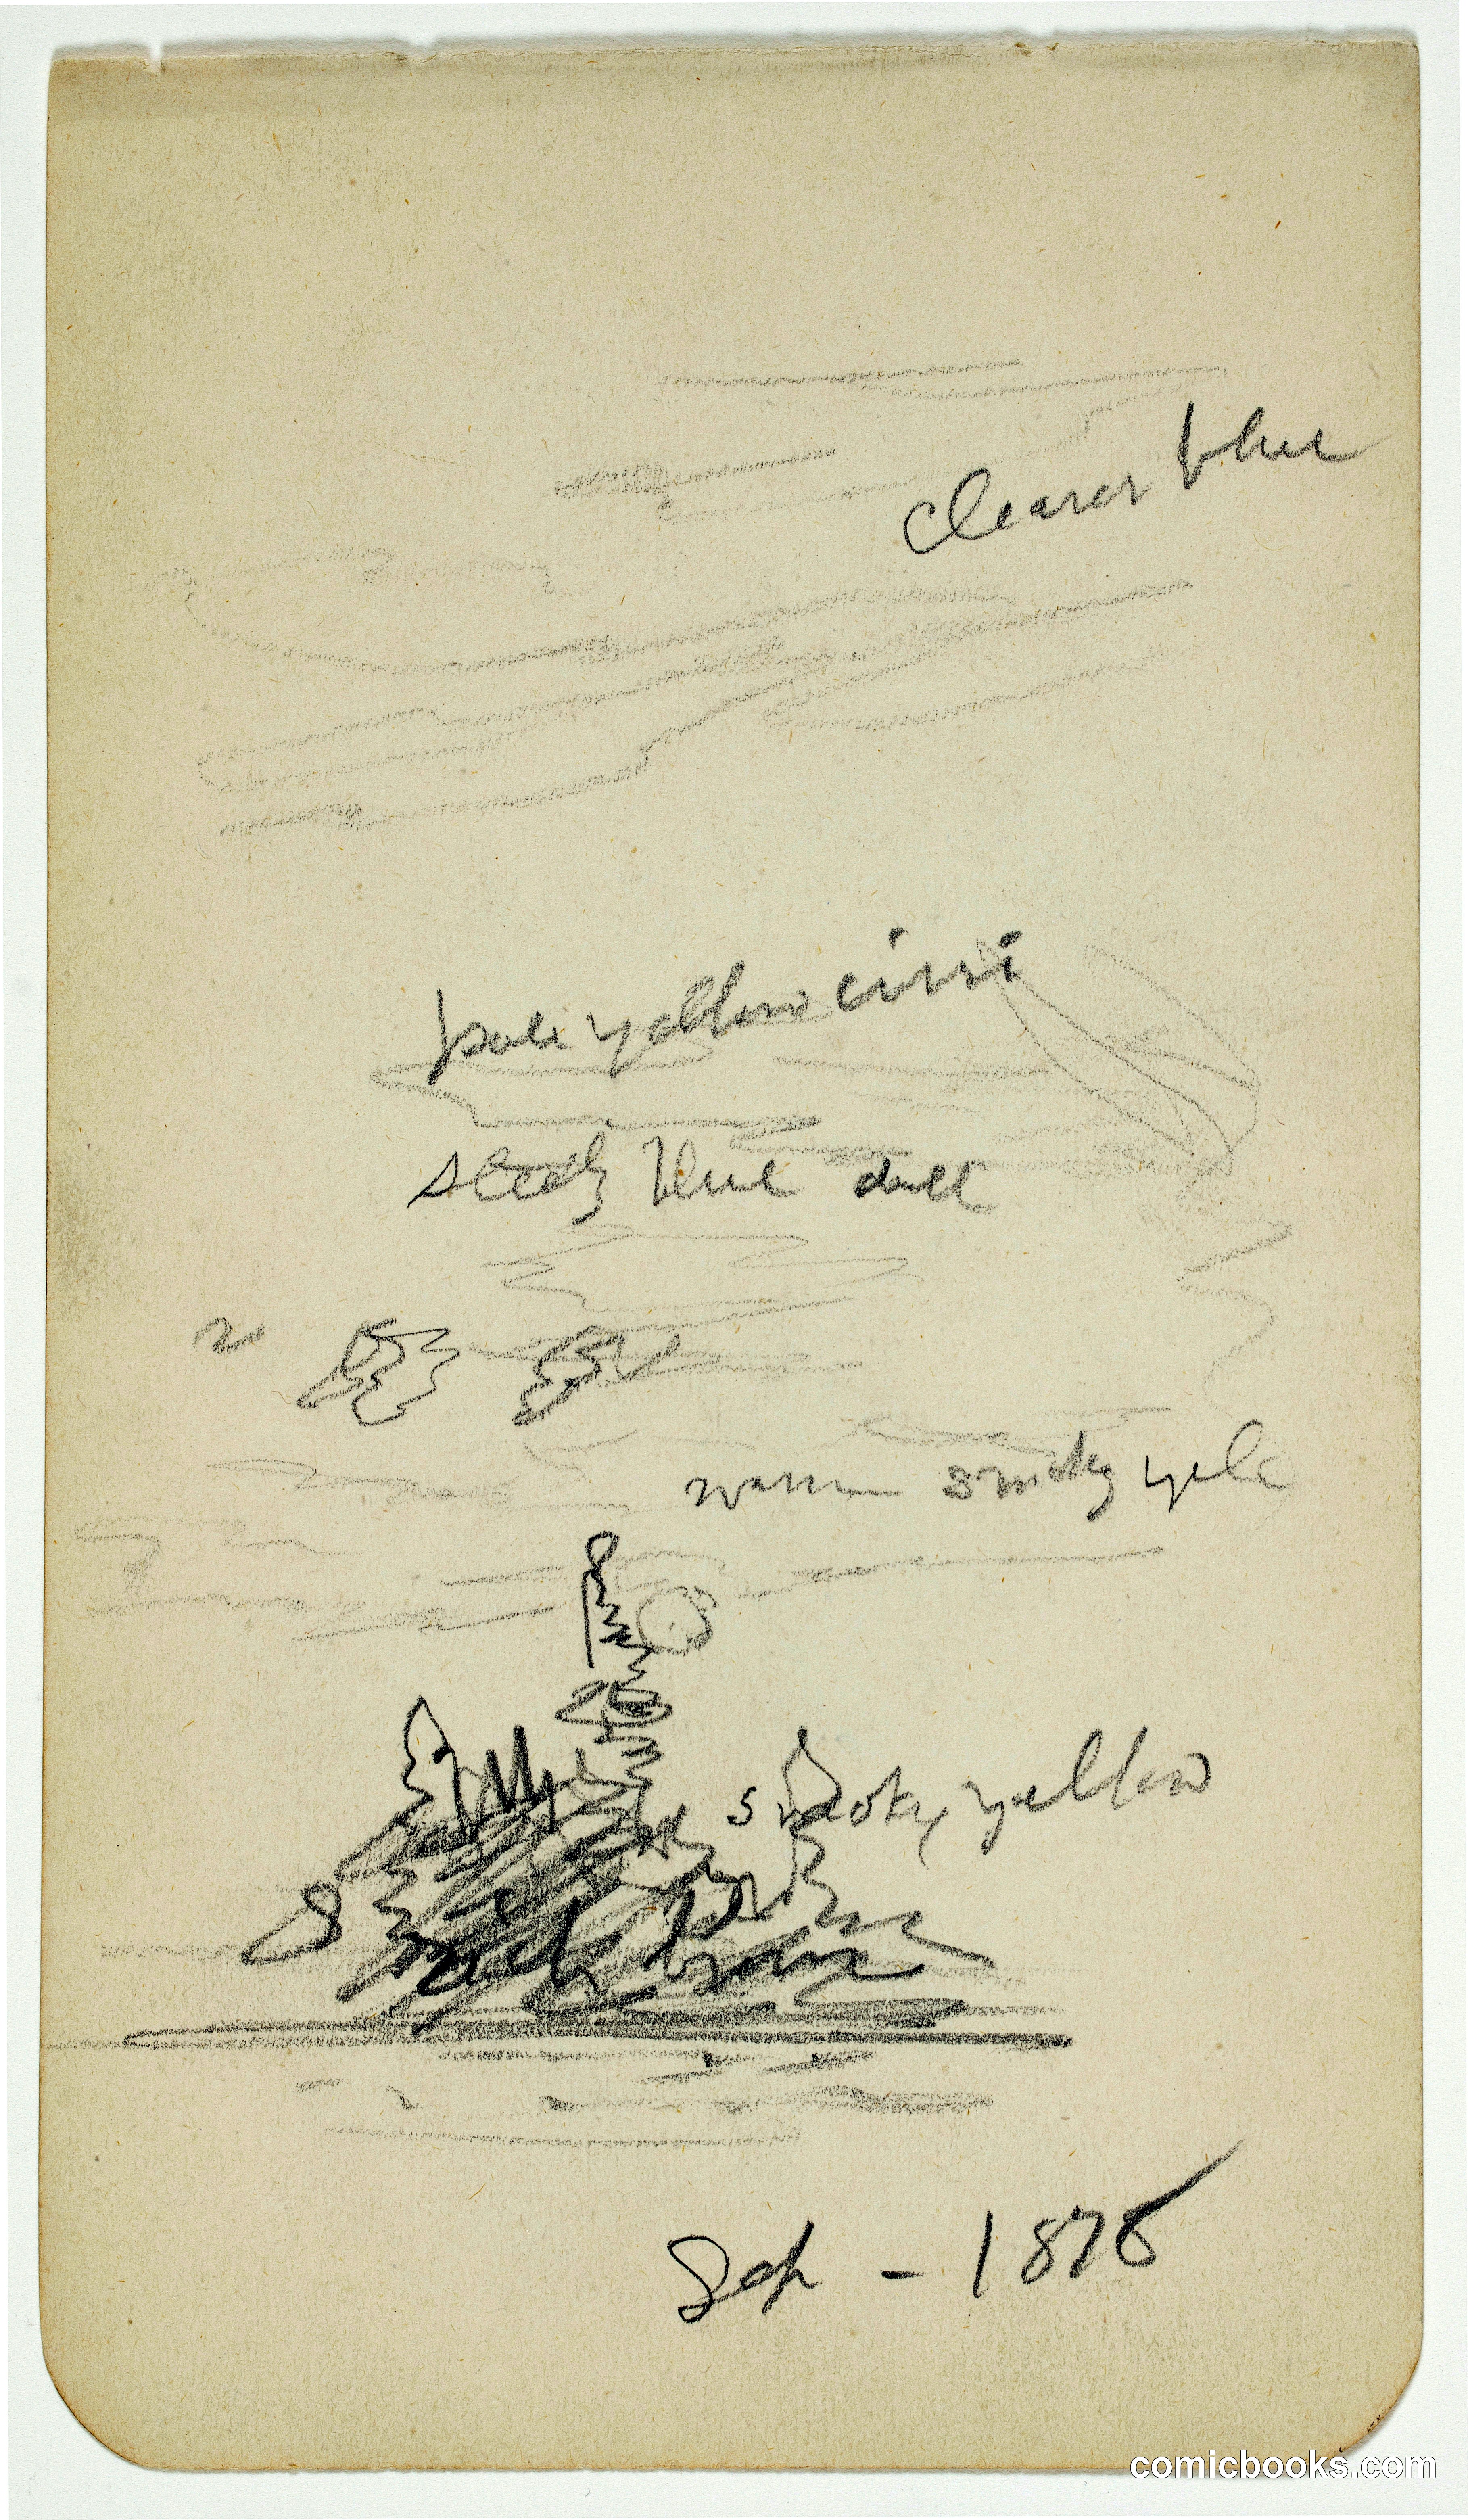 clearer blue
pale yellow cirri
steely blue dark
warm smoky yel
smoky yellow
rich brown
Sep - 1875
comicbooks.com